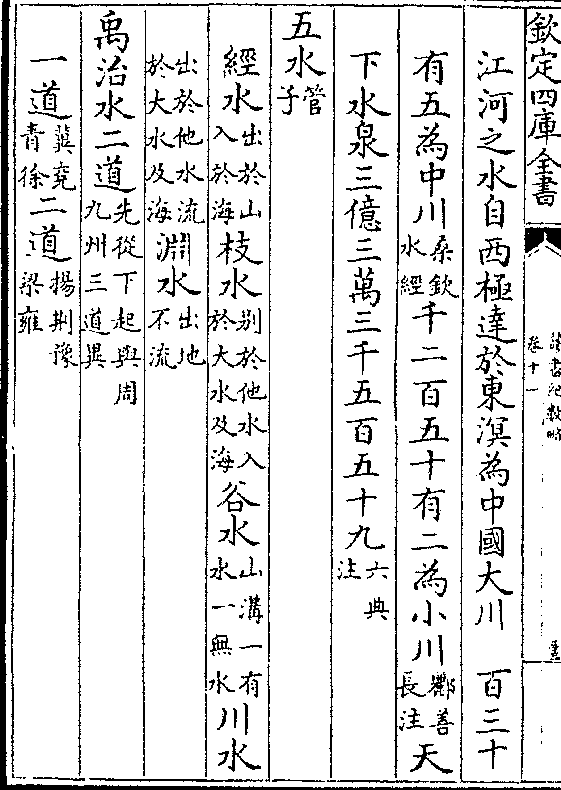 欽定四庫全書
讀書紀數略
卷十一
江河之水自西極達於東溟為中國大川　百三十
有五為中川桑欽水經千二百五十有二為小川酈善長注天
下水泉三億三萬三千五百五十九六典注
五水管子
經水出於山入於海枝水别於他水入於大水及海谷水山溝一有水一無水川水
出於他水流於大水及海淵水出地不流
禹治水二道先從下起與周九州三道異
一道冀兖青徐二道揚荆豫梁雍